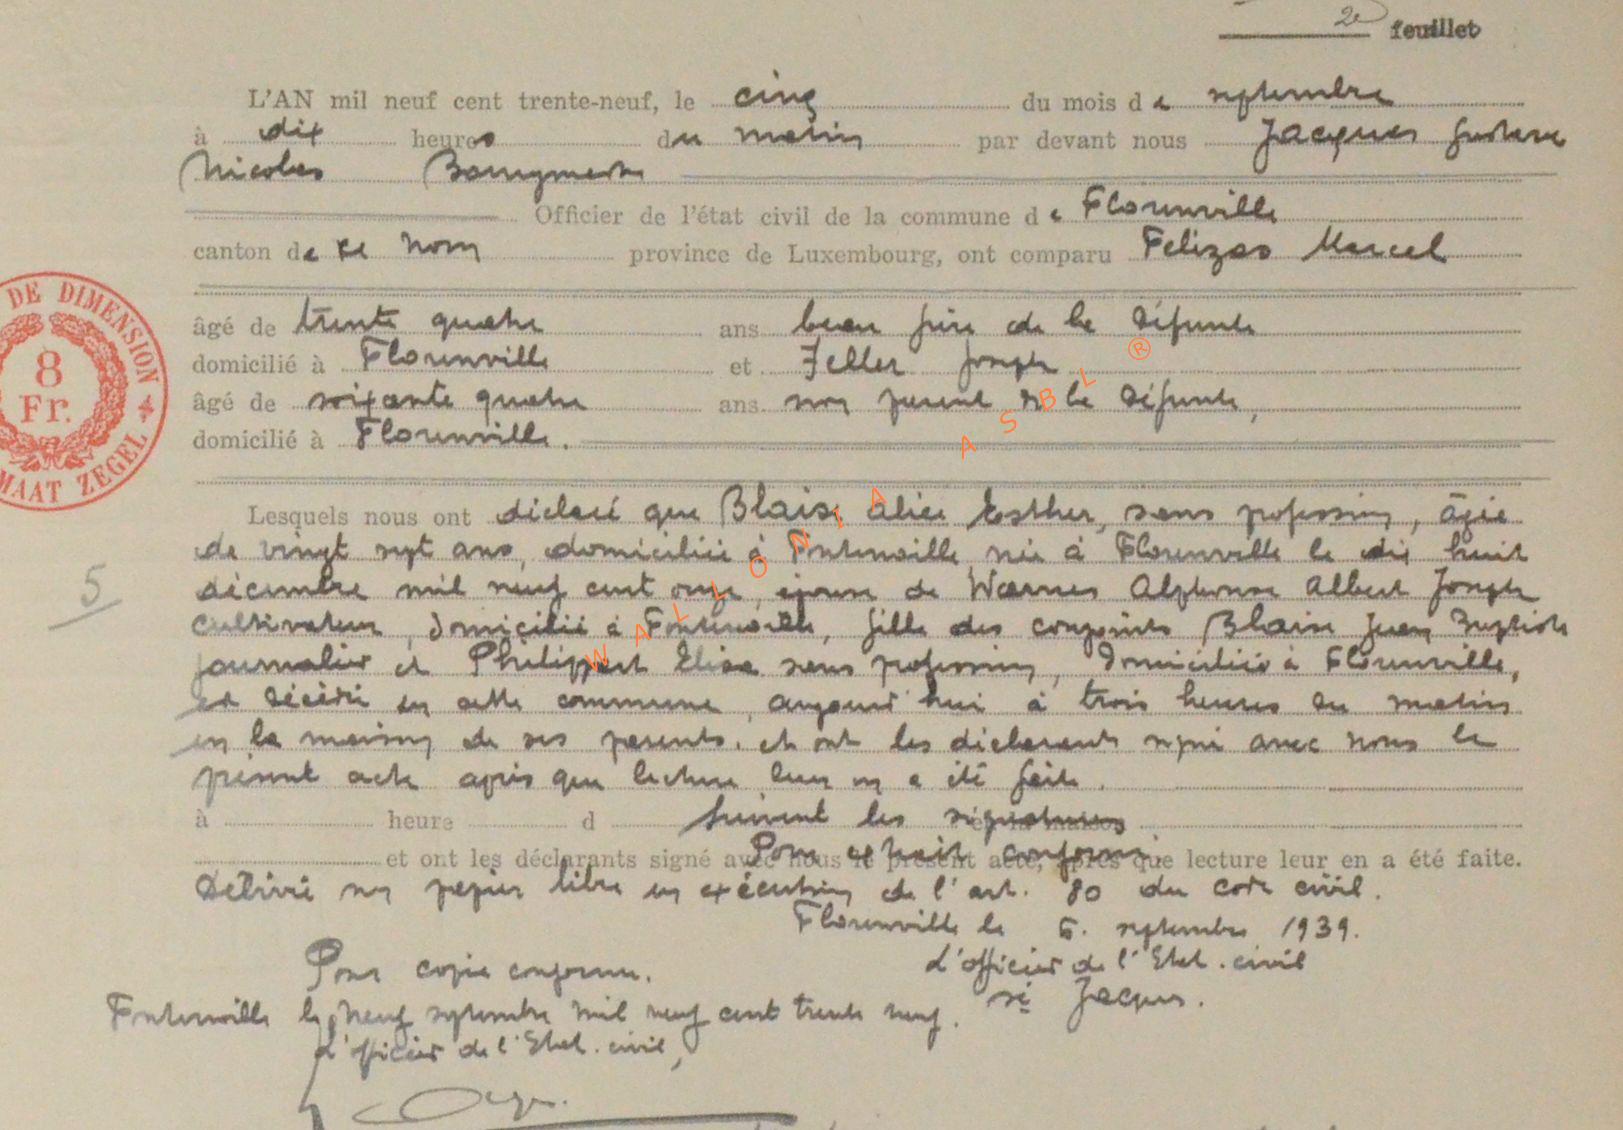 2e feuillet
L'AN mil neuf cent trente-neuf, le cinq du mois de septembre
à dix heures du matin par devant nous Jacques Gustave
Nicolas
Officier de l'état civil de la commune de Florenville
canton de ce nom province de Luxembourg, ont comparu Felizas Marcel
âgé de trente quatre ans beau frère de la défunte
domicilié à Florenville et Feller Joseph
âgé de soixante quatre ans non parent de la défunte,
domicilié à Florenville.
DE DIMENSION
8
Fr.
MAAT ZEGEL
Lesquels nous ont déclaré que Blaise Alice Esther, sans profession, âgée
de vingt sept ans, domiciliée à Fontenoille née à Florenville le dix huit
5
décembre mil neuf cent onze, épouse de Warnes Alphonse Albert Joseph
cultivateur, domicilié à Fontenoille, fille des conjoints Blaise Jean Baptiste
journalier et Philippart Elisa sans profession, domiciliés à Florenville,
est décédée en cette commune, aujourd'hui à trois heures du matin
en la maison de ses parents. et ont les déclarants signé avec nous le
présent acte après que lecture leur en a été faite.
à heure d Suivent les signatures en la maison
Pour extrait conforme.
et ont les déclarants signé avec nous le présent acte, après que lecture leur en a été faite.
Délivré sur papier libre en exécution de l'art. 80 du code civil.
Florenville le 6. septembre 1939.
Pour copie conforme. L'officier de l'Etat. civil
sé Jacques.
Fontenoille le neuf septembre mil neuf cent trente neuf.
L'officier de l'Etat. civil,
WALLONIA ASBL ®